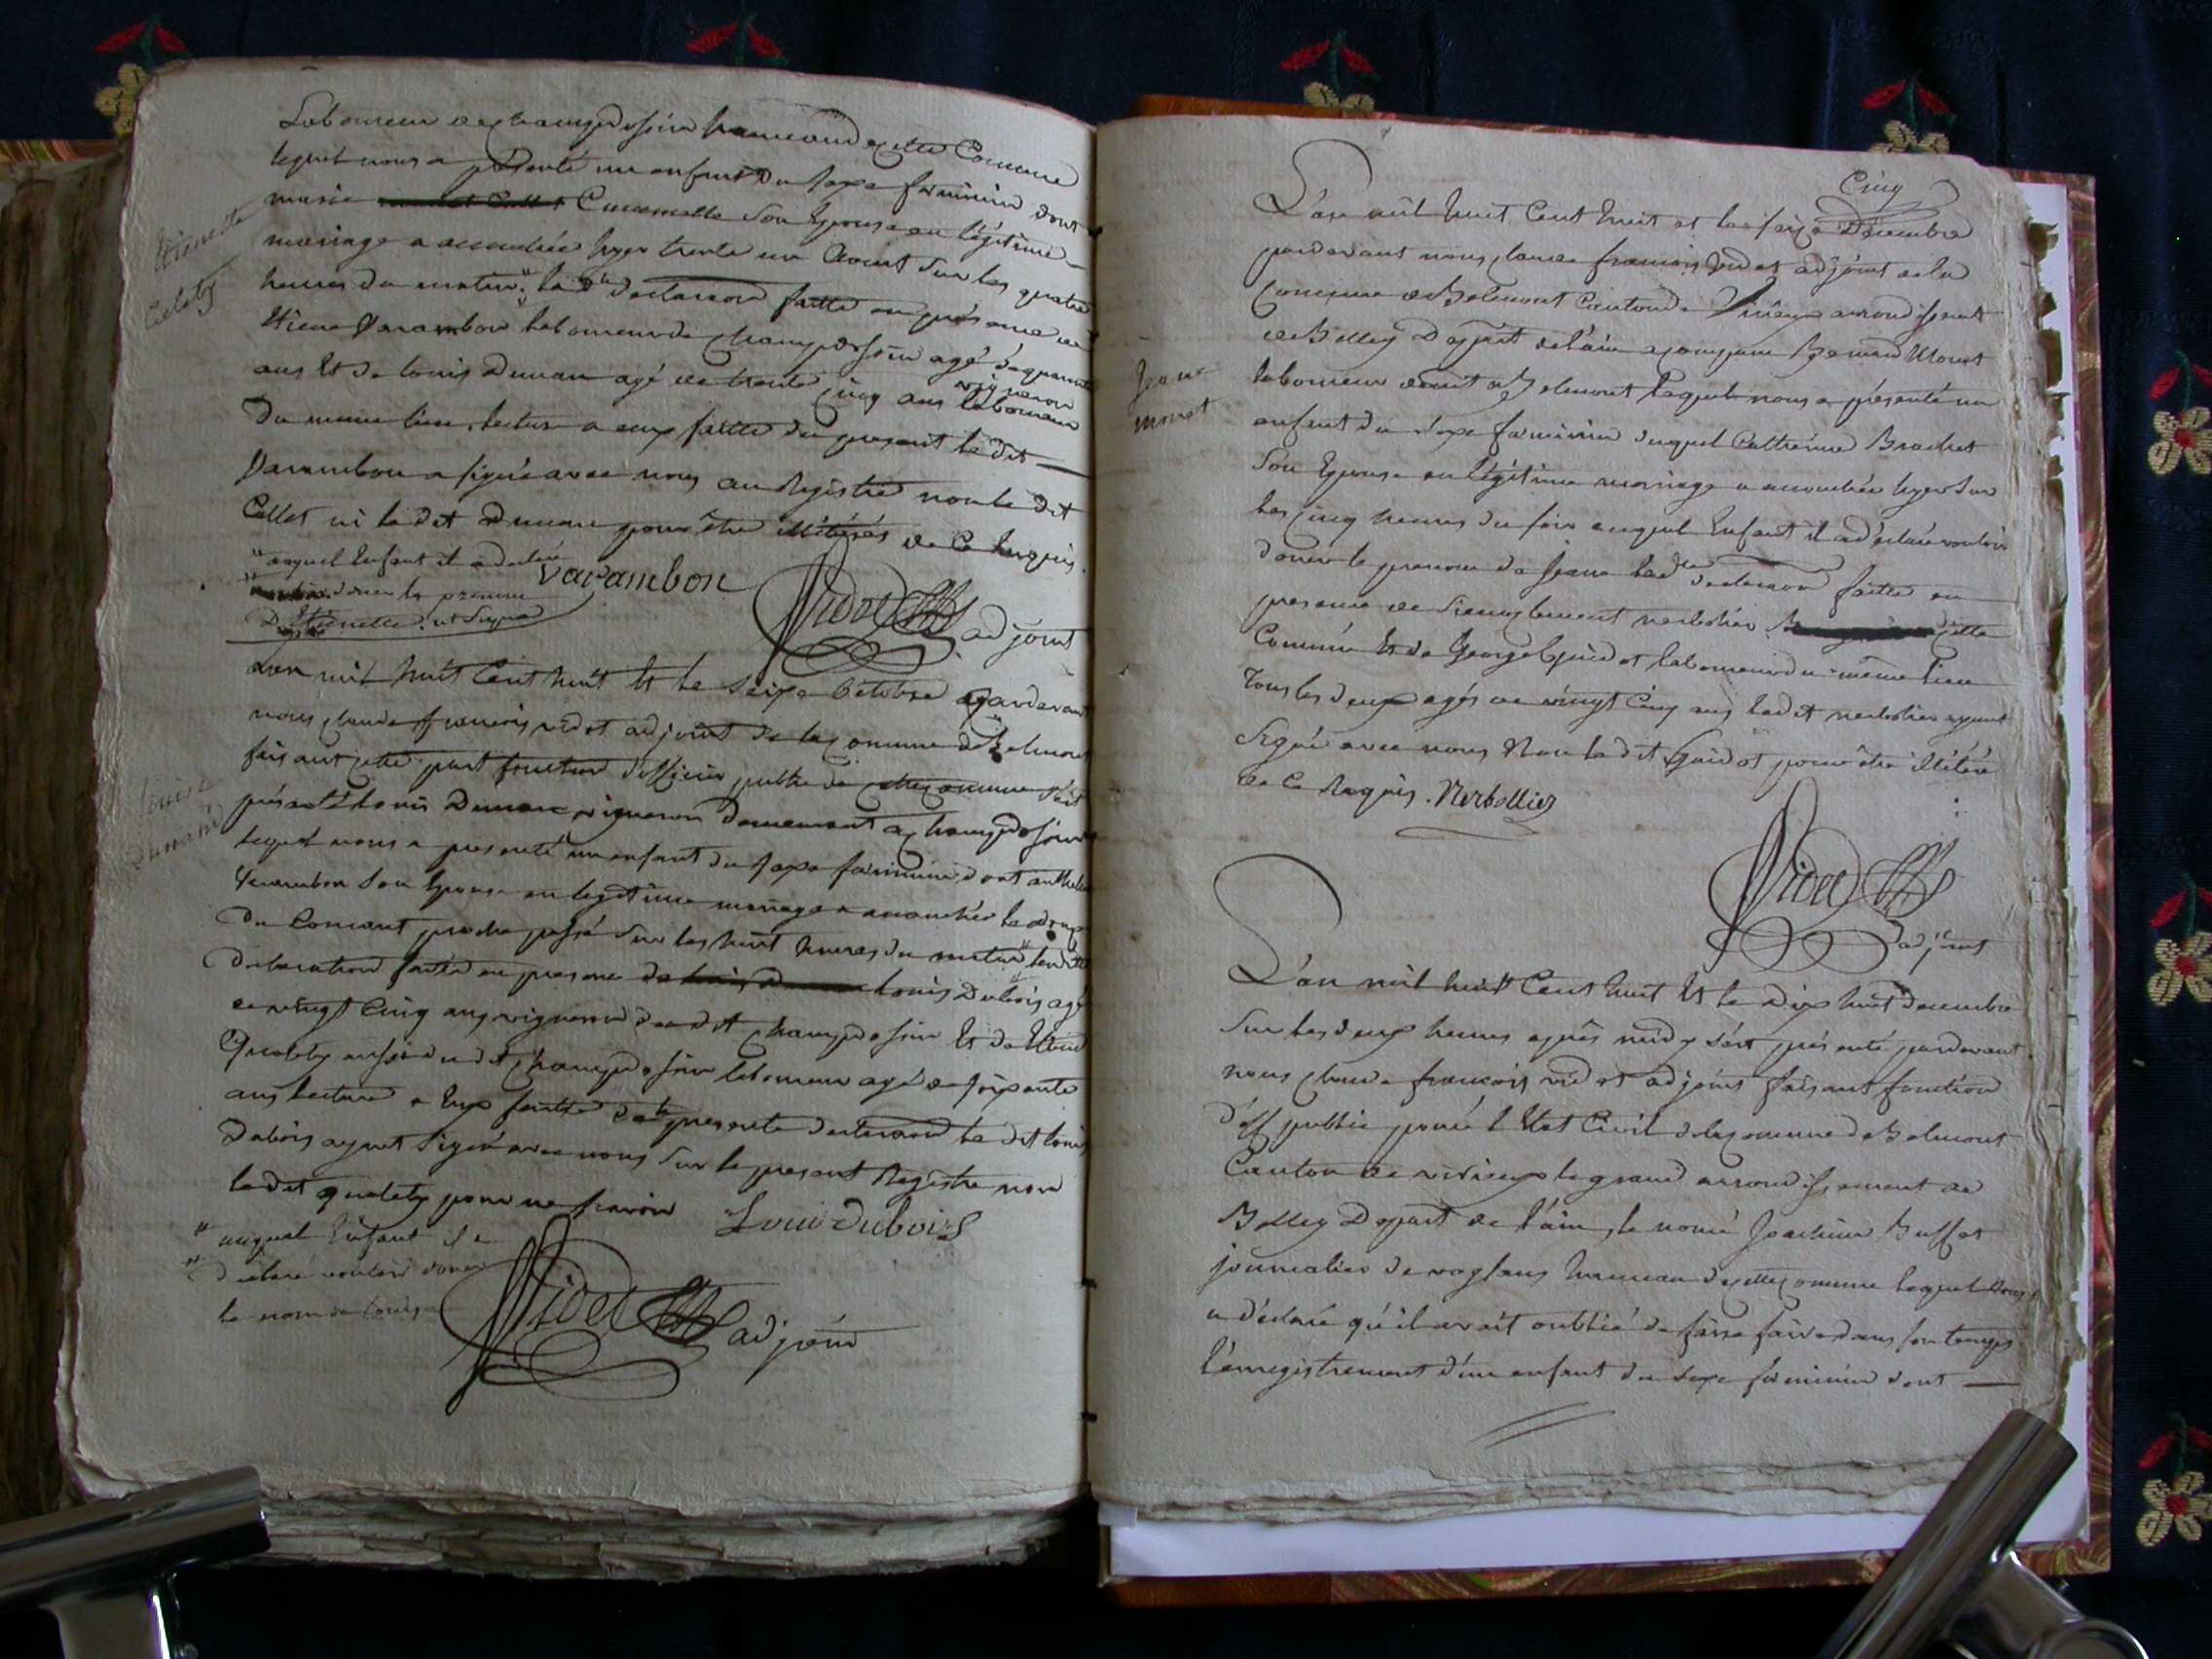 Laboureur de champdossin hameau de cette Comune
lequel nous a présenté un enfant du sexe feminin dont
marie Cuconnelle son Epouse en légitime
mariage a accouchée hyer trente un aoust sur les quatre
heures du matin " la de declaraon faitte en présence de
Etiene Varambon laboureur de champdossin agé de quarante
ans Et de louis Dunan agé de trente cinq ans laboureur
vigneron
du meme lieu, lecture a eux faitte du present le dit
Varambon a signé avec nous au Registre non le dit
Collet ni le dit Dunan pour être illitérés de ce Enquis.
" auquel Enfant il a declaré
" donner le prenom
D'Etienette
varambon
Vidot adjoint
Etienette
Colet
L'an mil huit Cent huit Et le seize octobre pardevant
nous claude françois vidot adjoint de la comune de Belmont
faisant cette part fonction d'officier public de cette comune s'est
présenté Louis Dunan vigneron demeurant a champdossin
lequel nous a presenté un enfant du sexe feminin dont
Varambon son Epouse en legitime mariage a accouchée le douze
du Courant proche passé sur les huit heures du matin " la ditte
declaration faitte en presence de louis Dubois agé
de vingt Cinq ans vigneron du dit champdossin Et de Etiene
aussi du dit champdossin laboureur agé de soixante
ans lecture a Eux faitte de la presente declaraon le dit louis
Dubois ayant signé avec nous sur le present Registre non
le dit pour ne savoir
Louis Dubois
" auquel Enfant il a
" déclaré vouloir donner
le nom de louise
Vidot adjoint
louise
dunand
Cinq
L'an mil huit Cent huit et le seize Décembre
pardevant nous claude françois vidot adjoint de la
Comune de Belmont Canton de Virieux arrondissement
de Belley Départ de l'ain a comparu Bernard Monet
laboureur demt a Belmont lequel nous a présenté un
enfant du sexe feminin duquel Catherine Brachet
son Epouse en légitime mariage a accouchée hyer sur
les cinq heures du soir auquel Enfant il a déclaré vouloir
doner le prenom de Jeane la de declaraon faitte en
presence de Sieur clement nerbollier de cette
Comune Et de George Guidot laboureur du même lieu
Tous les deux agés de vingt Cinq ans le dit nerbollier ayant
signé avec nous Non le dit Guidot pour être illitéré
de ce Requis. Nerbollier
Vidot
adjoint
Jeane
monet
L'an mil huit Cent huit Et le dix huit decembre
sur les deux heures après midy s'est présenté pardevant
nous claude françois vidot adjoint faisant fonction
d'off public pour l'Etat Civil de la comune de Belmont
Canton de virieux le grand arrondissement de
Belley Depart de l'ain, le nomé Joachim Buffet
journalier de voglans hameau de cette comune lequel nous
a déclaré qu'il avait oublié de faire faire dans son temps
l'enregistrement d'un enfant du sexe feminin dont